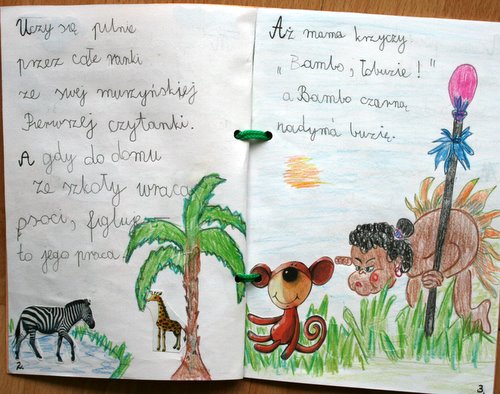 Uczy się pilnie
przez całe ranki
ze swej murzyńskiej
Pierwszej czytanki.
A gdy do domu
ze szkoły wraca
psoci, figluje
to jego praca.
2.
Aż mama krzyczy:
„Bambo, łobuzie!"
a Bambo czarną
nadyma buzię.
3.